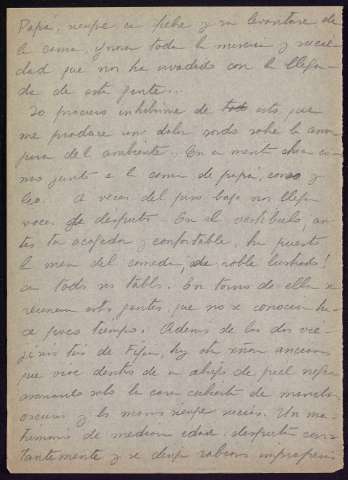 Papá, siempre en fiebre y sin levantarse de
la cama, ignora toda la miseria y sucie-
dad que nos ha invadido con la llega-
da de esta gente...
Yo procuro inhibirme de todo esto, que
me produce un dolor sordo sobre la
del ambiente. En
junto a la cama de papá, coso y
leo. A veces del piso bajo nos llegan
voces de disputa. En el vestíbulo, an-
tes tan acogedor y confortable, han puesto
la mesa del comedor, ¡de roble lustrado!
con todas sus tablas. En torno de ella se
reunen estas gentes, que no se conocen ha-
ce poco tiempo. Además de las dos vie-
jas de hay otra señora anciana
que vive dentro de un abrigo de piel negro
asomando solo la cara cubierta de manchas
oscuras y las manos siempre sucias. Un ma-
trimonio de mediana edad, disputa cons-
tantemente y se dirige rabiosos improperios